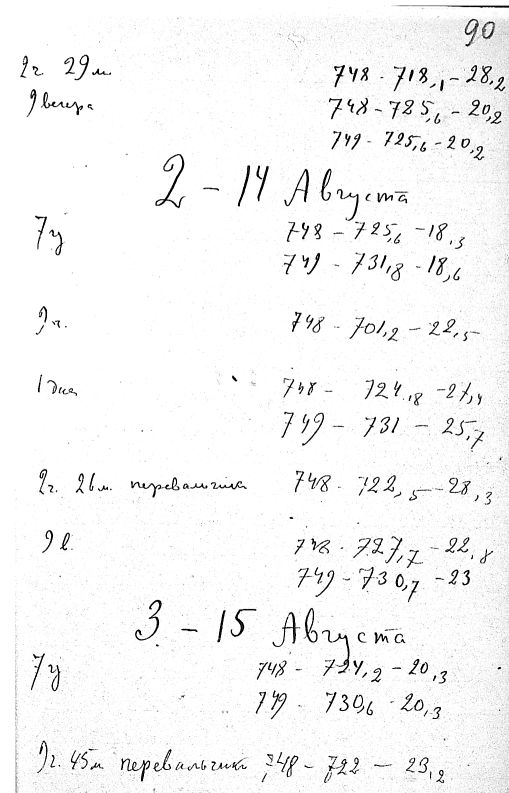 90
2ч. 29м. 748 - 718,1 - 28,2
9 вечера 748 - 725,6 - 20,2
749 - 725,6 - 20,2
2 - 14 Августа
7у 748 - 725,6 - 18,3
749 - 731,8 - 18,6
9ч. 748 - 701,2 - 22,5
1 дня 748 - 724,8 - 27,4
749 - 731 - 25,7
2ч. 26м. перевальчика 748 - 722,5 - 28,3
9 в. 748 - 727,7 - 22,8
749 - 730,7 - 23
3 - 15 Августа
7у 748 - 724,2 - 20,3
749 - 730,6 - 20,3
9ч. 45м перевальчика 748 - 722 - 23,2